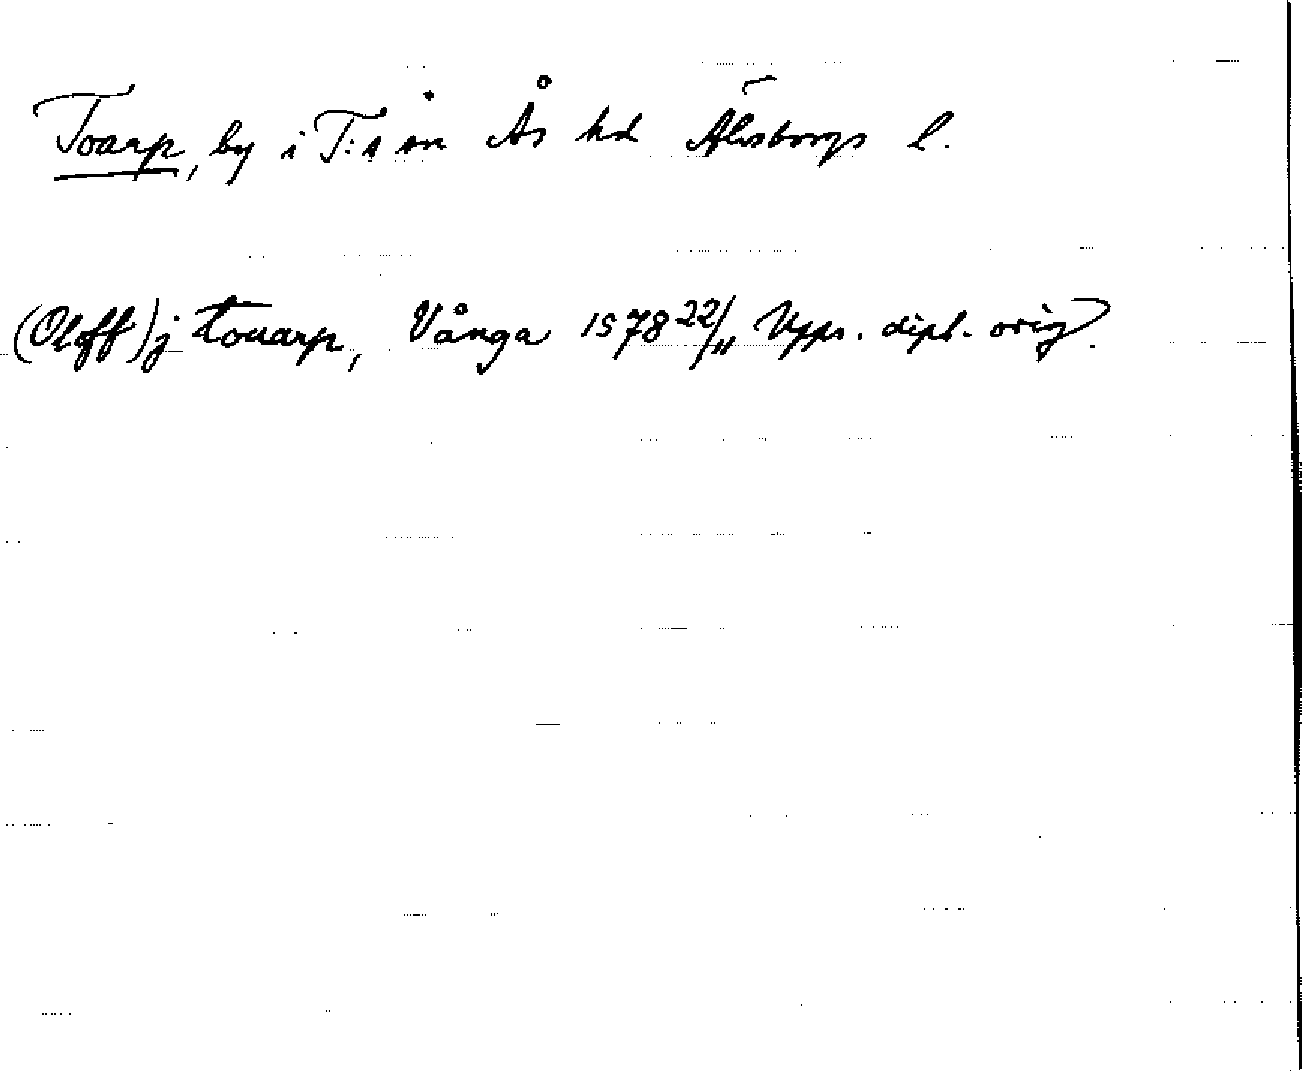 Toarp, by i T:s sn Ås hd Älvsborgs l.
(Oloff) j touarp, Vånga 1578 22/11 Upps. dipl. orig.